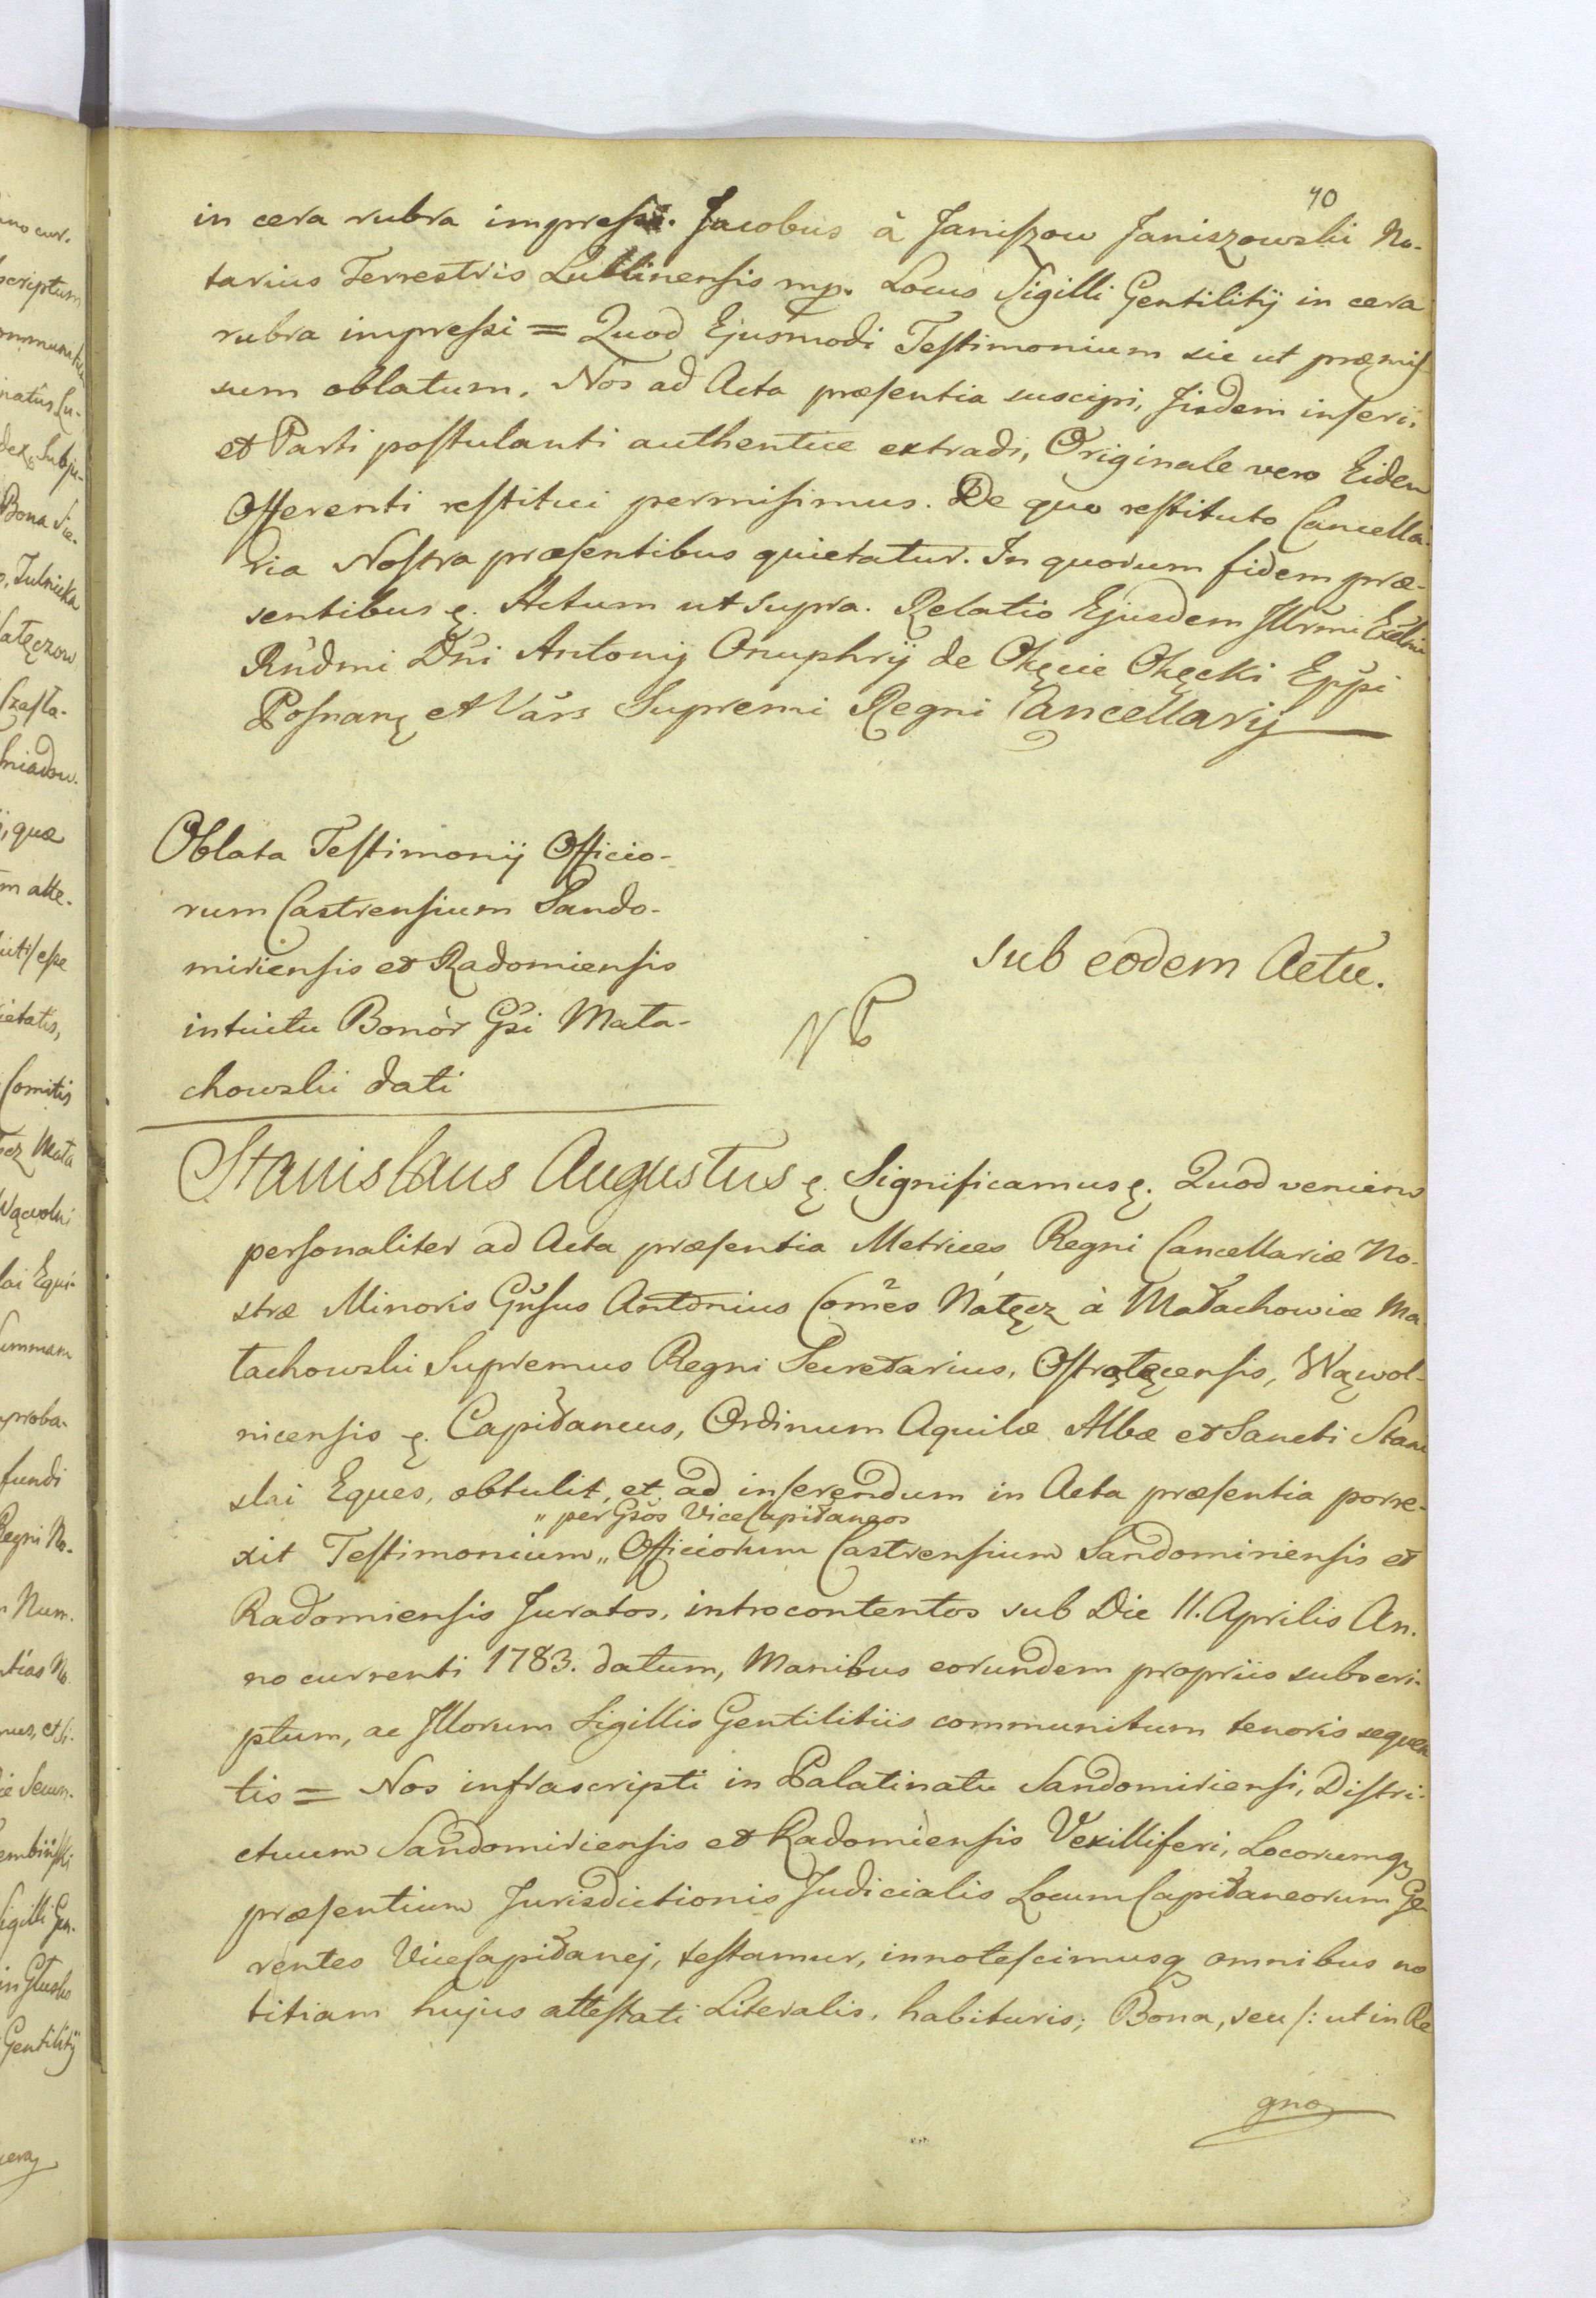 40
in cera rubra impressi. Jacobus à Janiszow Janiszowski No-
tarius Terrestris Lublinensis mp. Locus Sigilli Gentilitij in cera
rubra impressi = Quod Ejusmodi Testimonium sic ut præmis-
sum oblatum, Nos ad Acta præsentia suscipi, Jisdem inseri,
et Parti postulanti authentice extradi, Originale vero Eidem
Offerenti restitui permisimus. De quo restituto Cancella-
ria Nostra præsentibus quietatur. In quorum fidem præ-
sentibus ę. Actum ut supra. Relatio Ejusdem Jllrmi Excllmi
Rñdmi Dñi Antonij Onuphrij de Okęcie Okęcki Eppi
Posnanę et Vars Supremi Regni Cancellarij
Oblata Testimonij Officio-
rum Castrensium Sando-
miriensis et Radomiensis
intuitu Bonor Gsi Mała-
chowski dati
sub eodem Actu.
NB
Stanislaus Augustus ę. Significamus ę. Quod veniens
personaliter ad Acta præsentia Metrices Regni Cancellariæ No-
stræ Minoris Gñsus Antonius Comes Nałęcz à Małachowice Ma
łachowski Supremus Regni Secretarius, Ostrołęcensis, Wąwol-
nicensis ę. Capitaneus, Ordinum Aquilæ Albæ et Sancti Stani
slai Eques, obtulit, et ad inserendum in Acta præsentia porre-
„ per Gsos ViceCapitaneos
xit Testimonium „ Officiorum Castrensium Sandomiriensis et
Radomiensis Juratos, introcontentos sub Die 11. Aprilis An.
no currenti 1783. datum, Manibus eorundem propriis subscri-
ptum, ac Jllorum Sigillis Gentilitiis communitum tenoris sequen
tis = Nos infrascripti in Palatinatu Sandomiriensi, Distri-
ctuum Sandomiriensis et Radomiensis Vexilliferi, Locorumq
præsentium Jurisdictionis Judicialis Locum Capitaneorum Ge-
rentes ViceCapitanej, testamur, innotescimusq omnibus no
titiam hujus attestati Literalis, habituris; Bona, seu /: ut in Re
gno